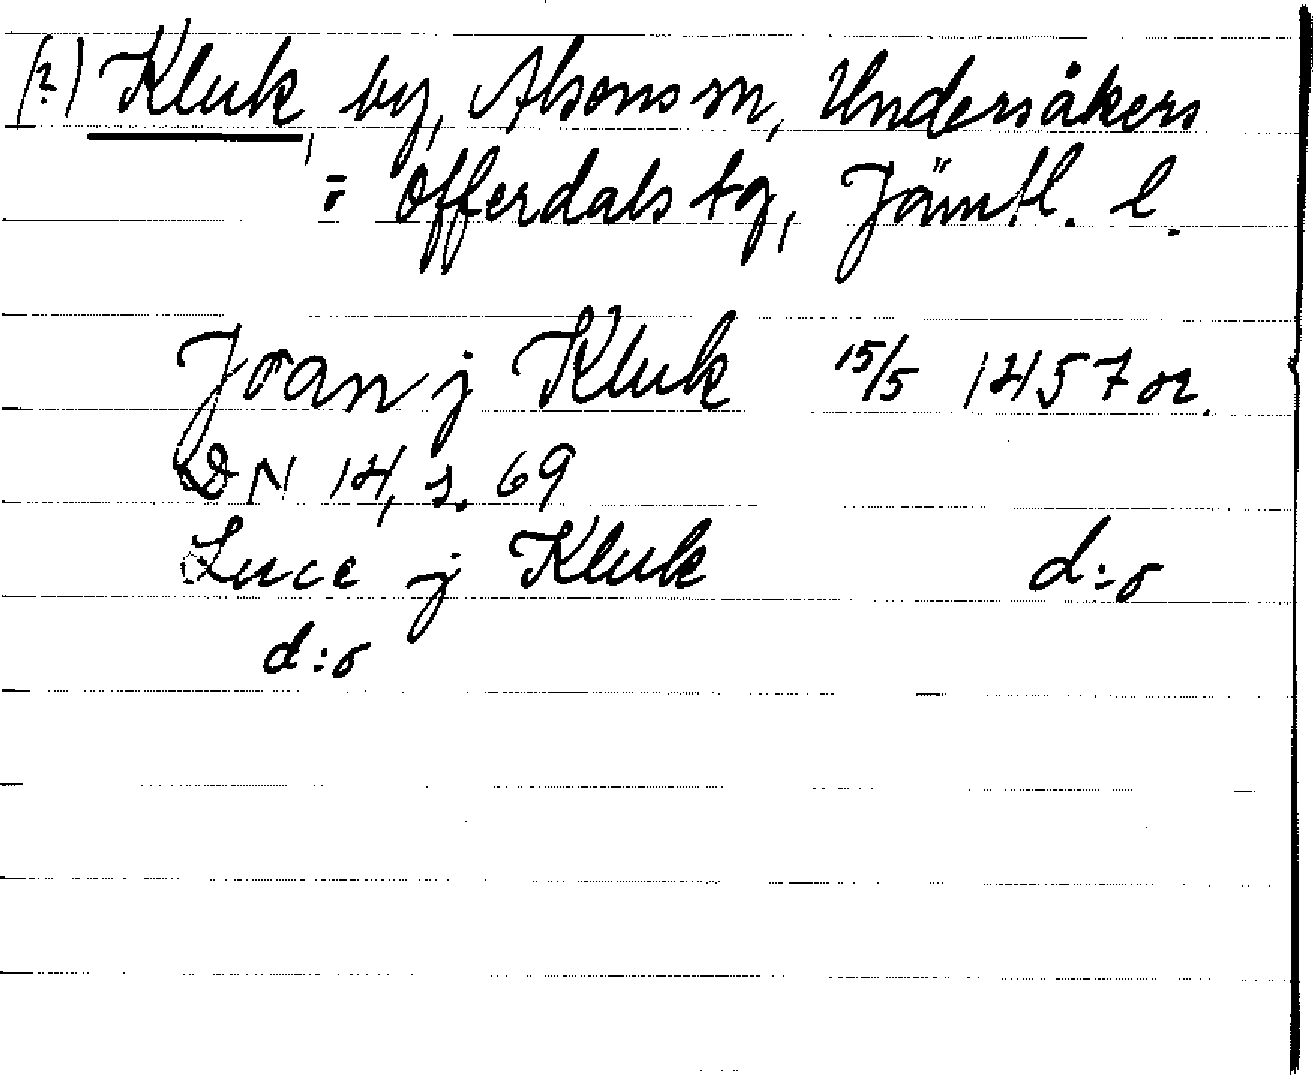 (?) Kluk, by, Alsens sn, Undersåkers
= Offerdals tg, Jämtl. l.
Joan j Kluk 15/5 1457 or.
DN 14, s. 69
Luce j Kluk d:o
d:o